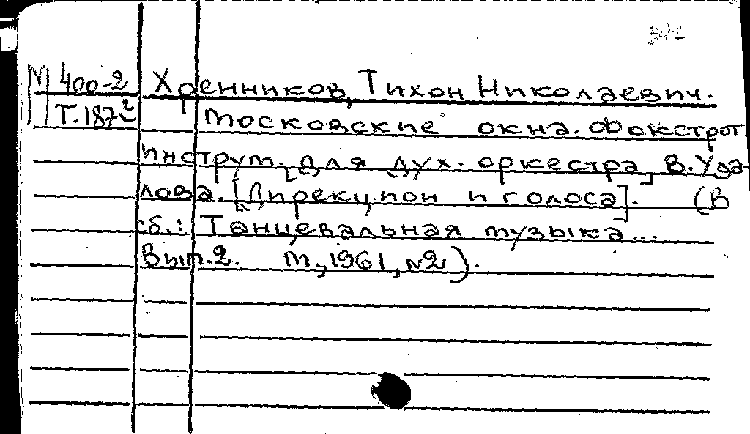 М 400-2 Хренников, Тихон Николаевич.
Т.187² Московские окна. Фокстрот
Инструм. [для дух. оркестра] В. Уза-
лова. [Дирекцион и голоса]. (В
сб.: Танцевальная музыка...
Вып.2. М., 1961, №2).